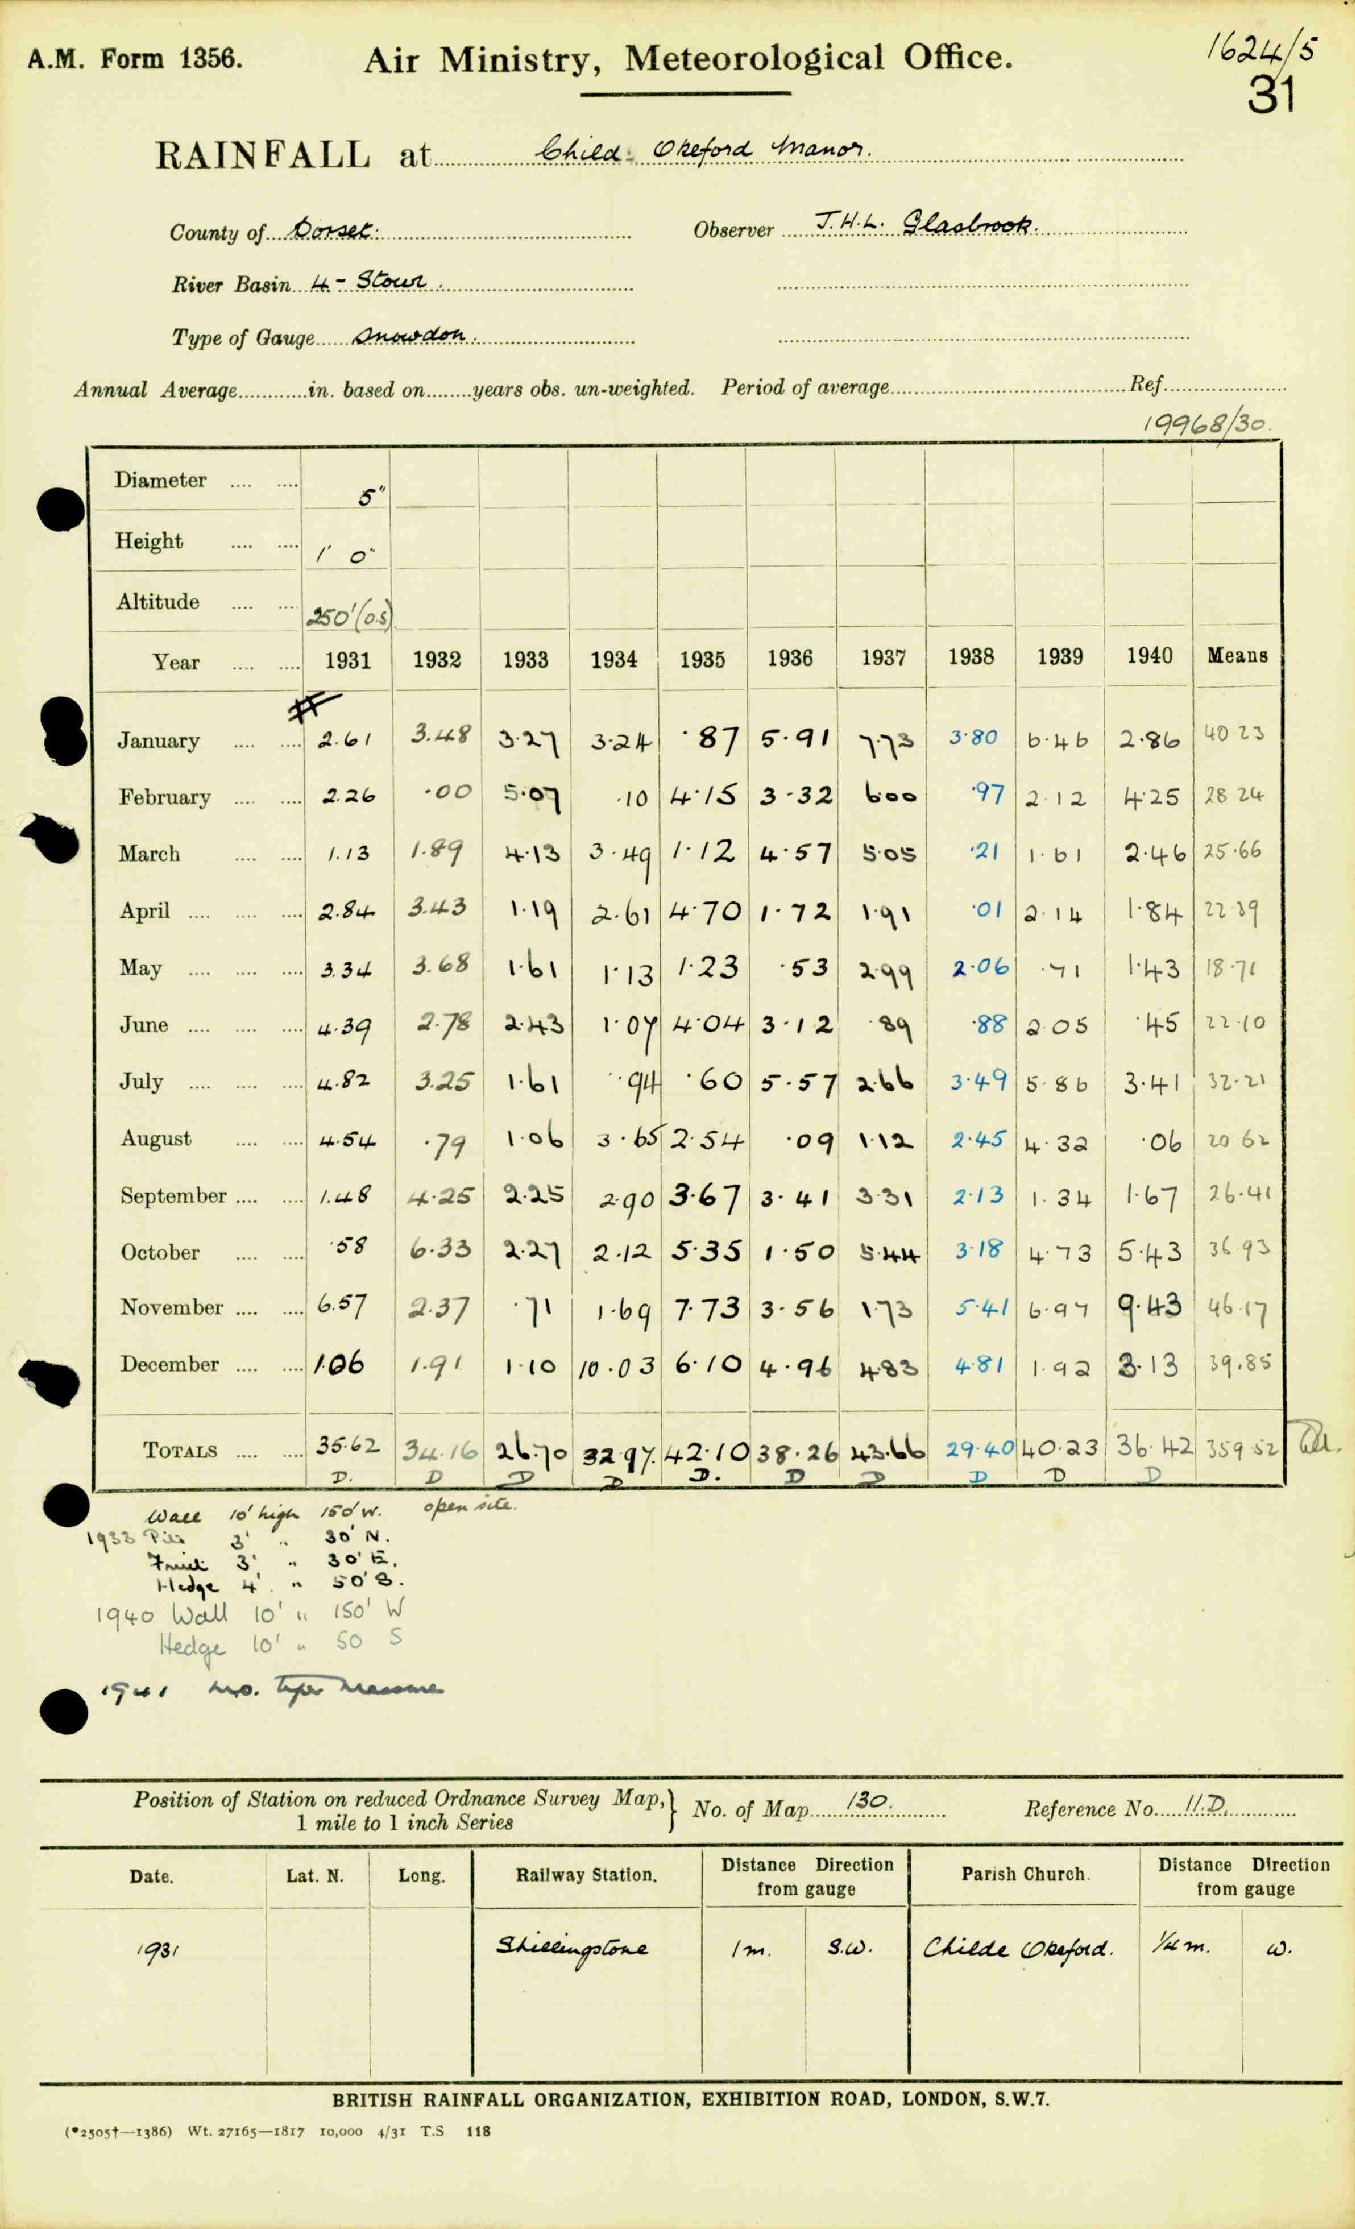 A.M. Form 1356. Air Ministry, Meteorological Office. 1624/5
31
RAINFALL at Child Okeford Manor.
County of Dorset. Observer J.H.L. Glasbrook.
River Basin 4 - Stour.
Type of Gauge Snowdon.
Annual Average in. based on years obs. un-weighted. Period of average Ref.
19968/30.
Diameter 5"
Height 1' 0"
Altitude 250'(o.s)
Year 1931 1932 1933 1934 1935 1936 1937 1938 1939 1940 Means
January 2.61 3.48 3.27 3.24 .87 5.91 7.73 3.80 6.46 2.86 40 23
February 2.26 .00 5.07 .10 4.15 3.32 6.00 .97 2.12 4.25 28 24
March 1.13 1.89 4.13 3.49 1.12 4.57 5.05 .21 1.61 2.46 25.66
April 2.84 3.43 1.19 2.61 4.70 1.72 1.91 .01 2.14 1.84 22 39
May 3.34 3.68 1.61 1.13 1.23 .53 2.99 2.06 .71 1.43 18.71
June 4.39 2.78 2.43 1.07 4.04 3.12 .89 .88 2.05 .45 22.10
July 4.82 3.25 1.61 .94 .60 5.57 2.66 3.49 5.86 3.41 32.21
August 4.54 .79 1.06 3.65 2.54 .09 1.12 2.45 4.32 .06 20 62
September 1.48 4.25 2.25 2.90 3.67 3.41 3.31 2.13 1.34 1.67 26.41
October .58 6.33 2.27 2.12 5.35 1.50 5.44 3.18 4.73 5.43 36 93
November 6.57 2.37 .71 1.69 7.73 3.56 1.73 5.41 6.97 9.43 46.17
December 1.06 1.91 1.10 10.03 6.10 4.96 4.83 4.81 1.92 3.13 39.85
TOTALS 35.62 34.16 26.70 32.97. 42.10 38.26 43.66 29.40 40.23 36.42 359 52
D. D D D D. D D D D D
Wall 10' high 150' W. open site.
1933 3' " 30' N.
Fruit 3' " 30' E.
Hedge 4' " 50' S.
1940 Wall 10' " 150' W
Hedge 10' " 50 S
1941 no.
Position of Station on reduced Ordnance Survey Map, } No. of Map 130. Reference No. 11.D.
1 mile to 1 inch Series
Date. Lat. N. Long. Railway Station. Distance Direction from gauge Parish Church. Distance Direction from gauge
1931 Shillingstone 1 m. S.W. Childe Okeford. 1/4 m. W.
BRITISH RAINFALL ORGANIZATION, EXHIBITION ROAD, LONDON, S.W.7.
(*2505†—1386) Wt. 27165—1817 10,000 4/31 T.S 118